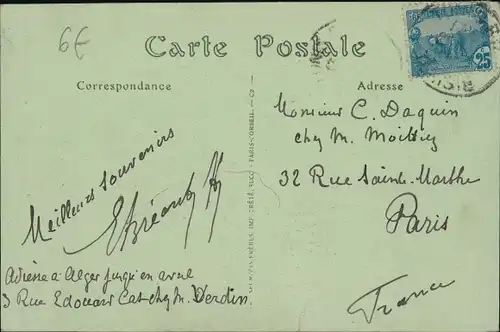 6€
Carte Postale
Correspondance
Adresse
25
Monsieur C. Daquin
chez M.
32 Rue Sainte-Marthe
Paris
France
Meilleurs souvenirs
Adresse à Alger jusqu'en avril
3 Rue Edouard Cat chez M. Verdin